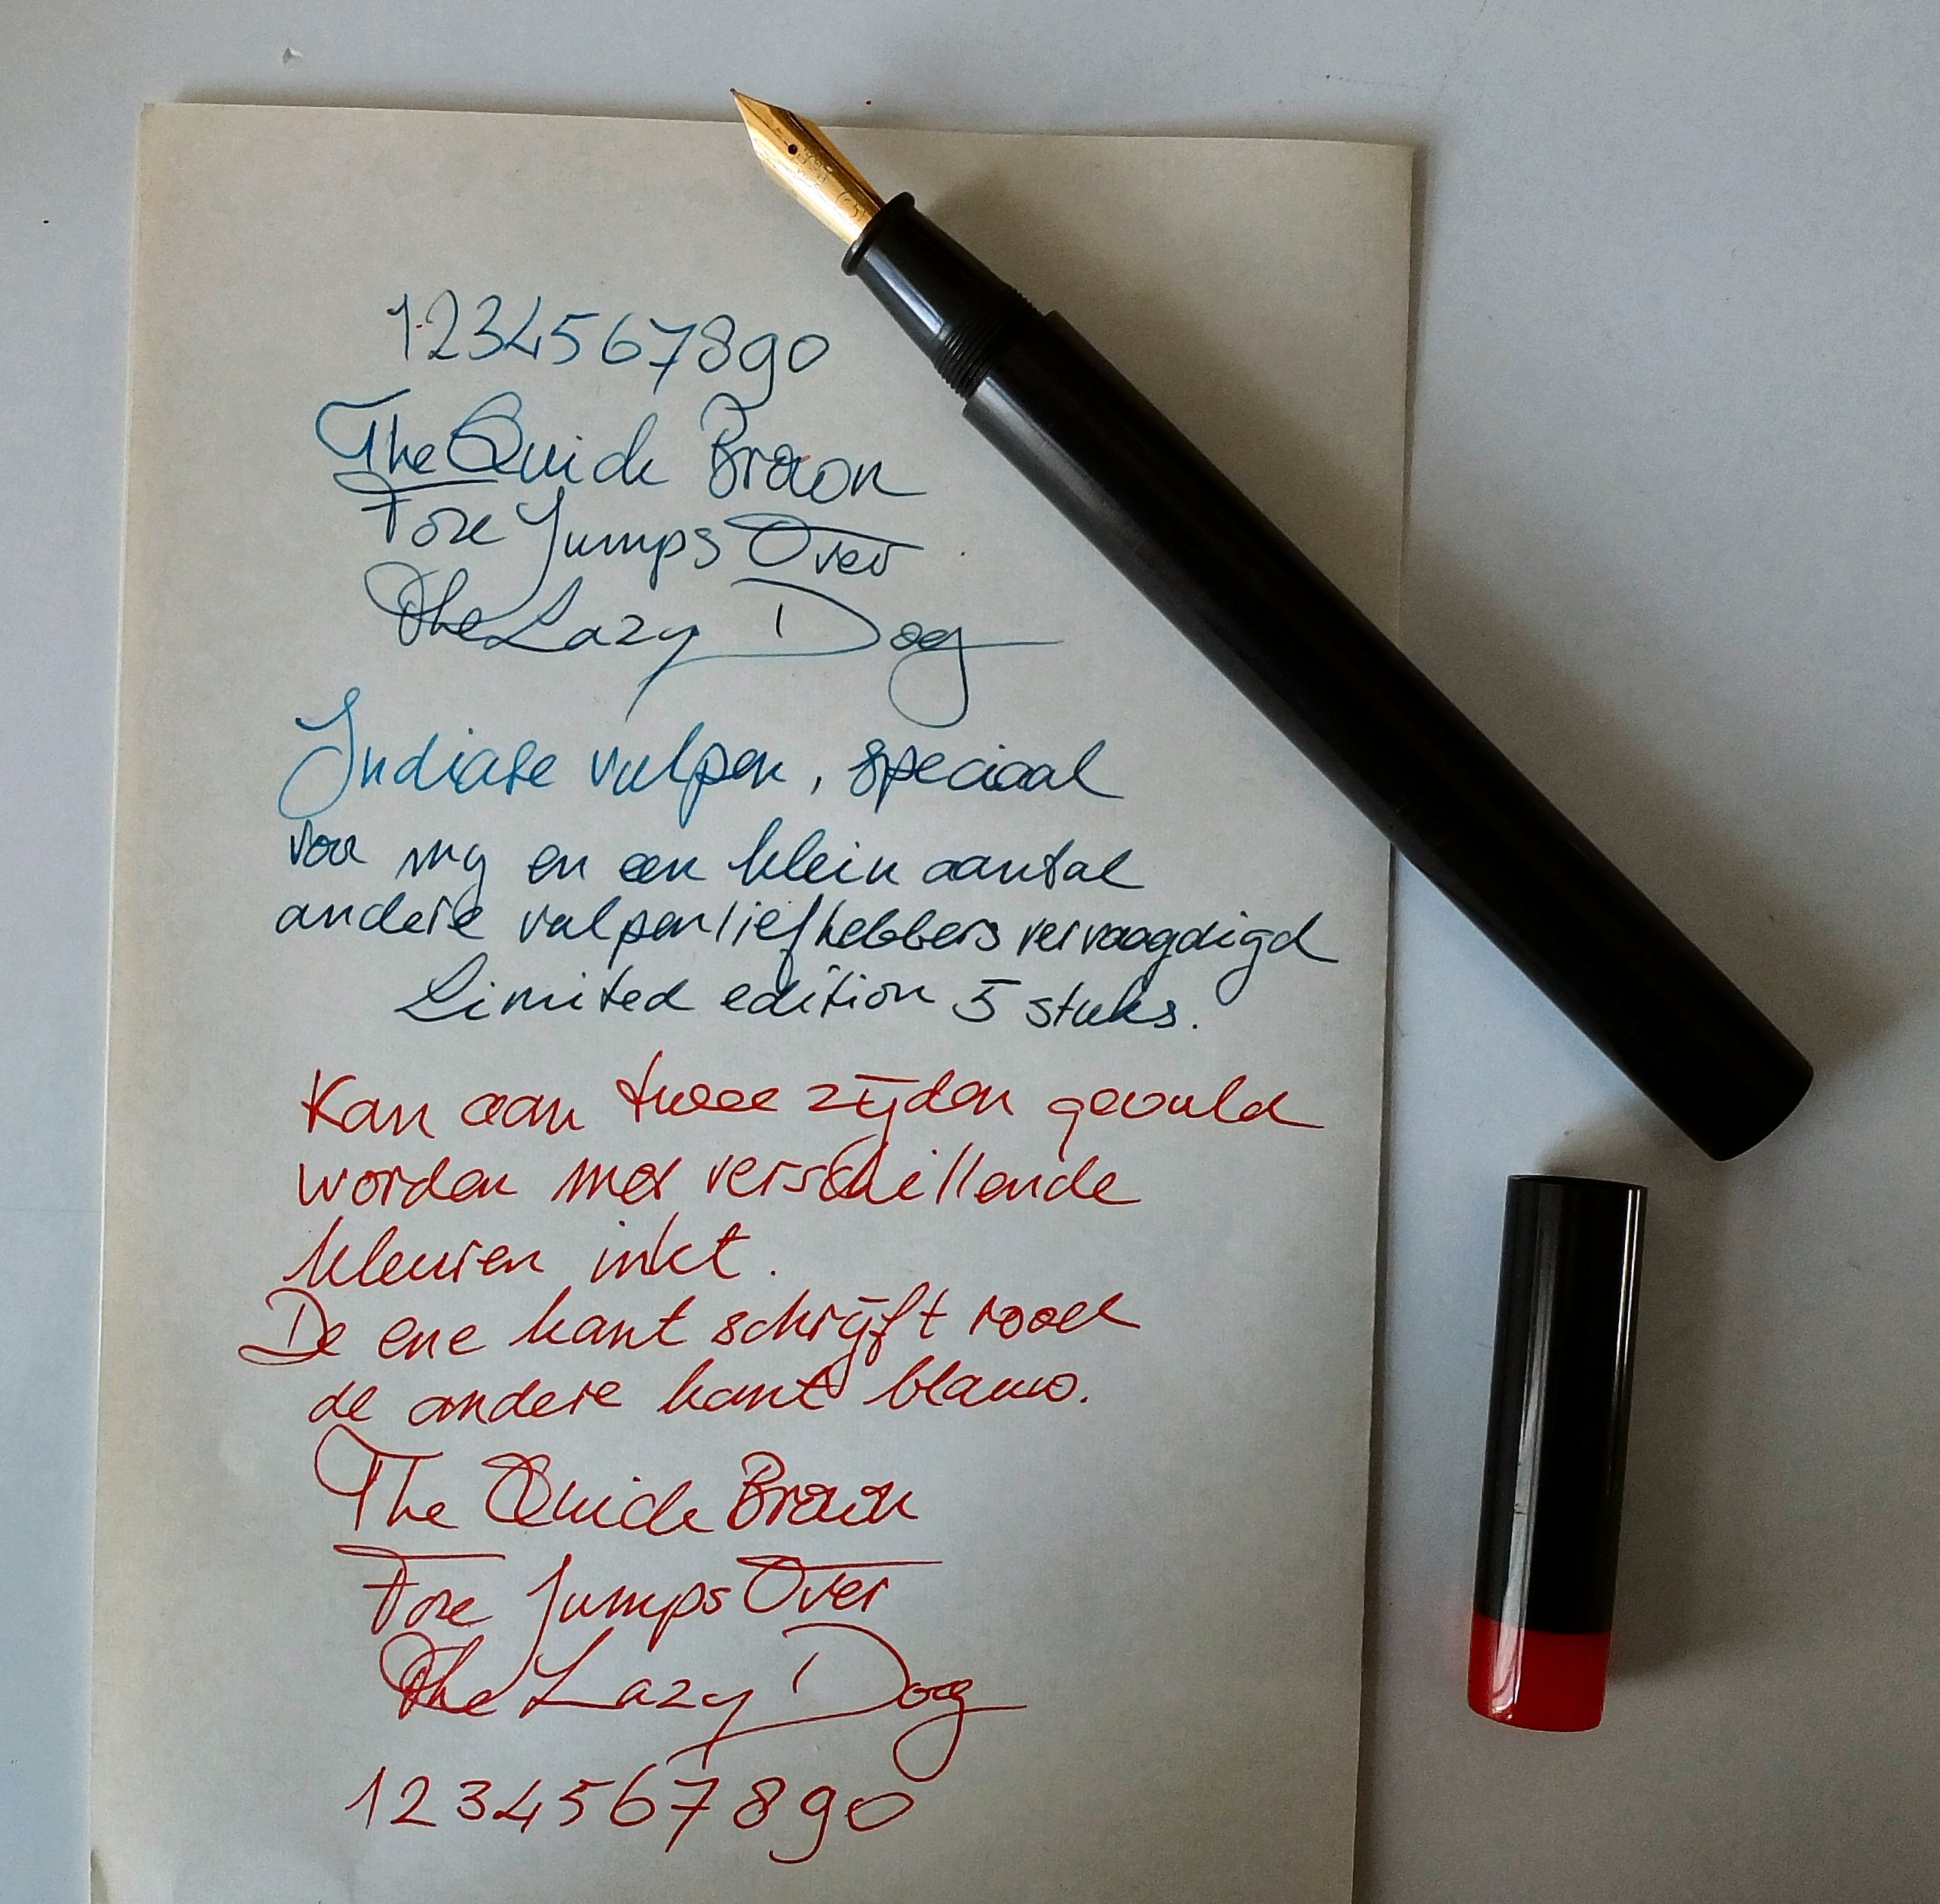 1234567890
The Quick Brown
Fox Jumps Over
The Lazy Dog
Indiase vulpen, speciaal
voor mij en een klein aantal
andere vulpenliefhebbers vervaagdigd
Limited edition 5 stuks.
Kan aan twee zijden gevuld
worden met verschillende
kleuren inkt.
De ene kant schrijft rood
de andere kant blauw.
The Quick Brown
Fox Jumps Over
The Lazy Dog
1234567890